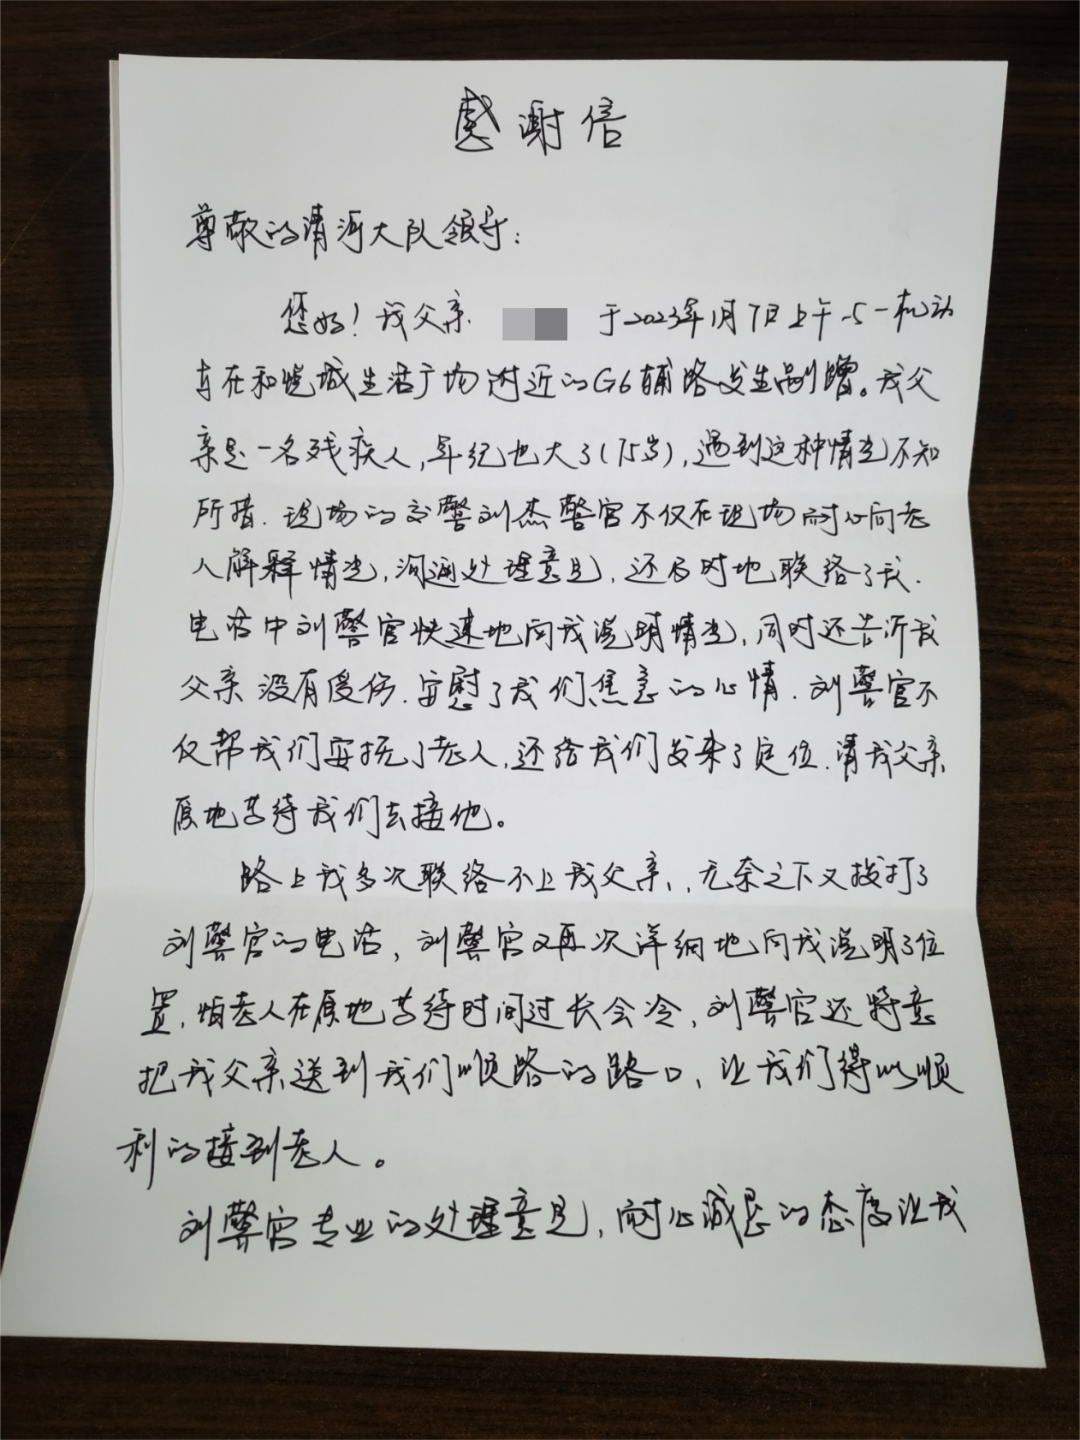 感谢信
尊敬的清河大队领导：
您好！我父亲 于2023年1月7日上午与一机动
车在和悦城生活广场附近的G6辅路发生剐蹭。我父
亲是一名残疾人，年纪也大了(75岁)，遇到这种情况不知
所措．现场的交警刘杰警官不仅在现场耐心向老
人解释情况，沟通处理意见，还及时地联络了我．
电话中刘警官快速地向我说明情况，同时还告诉我
父亲没有受伤．安慰了我们焦急的心情．刘警官不
仅帮我们安抚了老人，还给我们发来了定位．请我父亲
原地等待我们去接他。
路上我多次联络不上我父亲，无奈之下又拨打了
刘警官的电话，刘警官又再次详细地向我说明了位
置，怕老人在原地等待时间过长会冷，刘警官还特意
把我父亲送到我们顺路的路口，让我们得以顺
利的接到老人。
刘警官专业的处理意见，耐心诚恳的态度让我